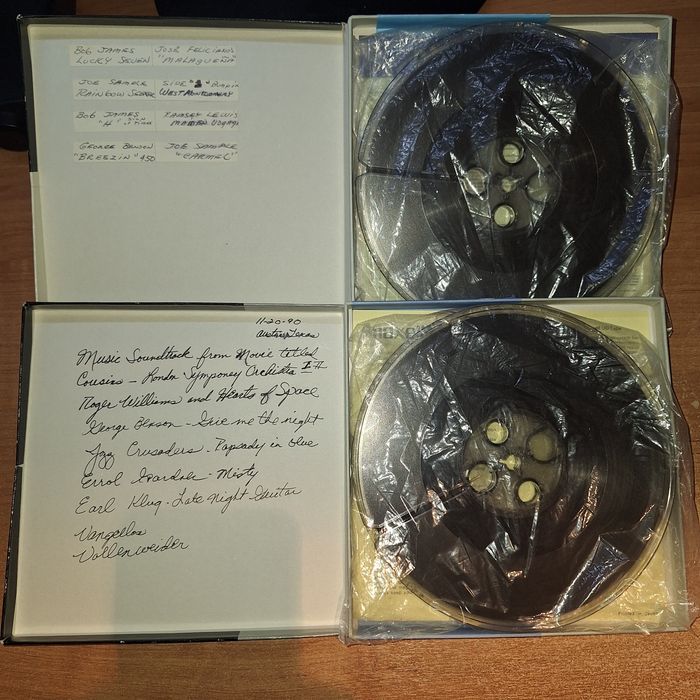 BOB JAMES
LUCKY SEVEN
JOSÉ FELICIANO'S
"MALAGUENA"
JOE SAMPLE
RAINBOW SEEKER
SIDE "2"
WES MONTGOMERY
BOB JAMES
"H" SIGN
RAMSEY LEWIS
MAIDEN VOYAGE
GEORGE BENSON
"BREEZIN" 450
JOE SAMPLE
"CARMEL"
11-20-90
Austin, Texas
Music Soundtrack from Movie titled
Cousins - Londn Symponey Orchestra I-II
Roger Williams and Hearts of Space
George Benson - Give me the night
Jazz Crusaders - Rapsady in blue
Errol Gardner - Misty
Earl Klug - Late Night Guitar
Vangellos
Vollenweider